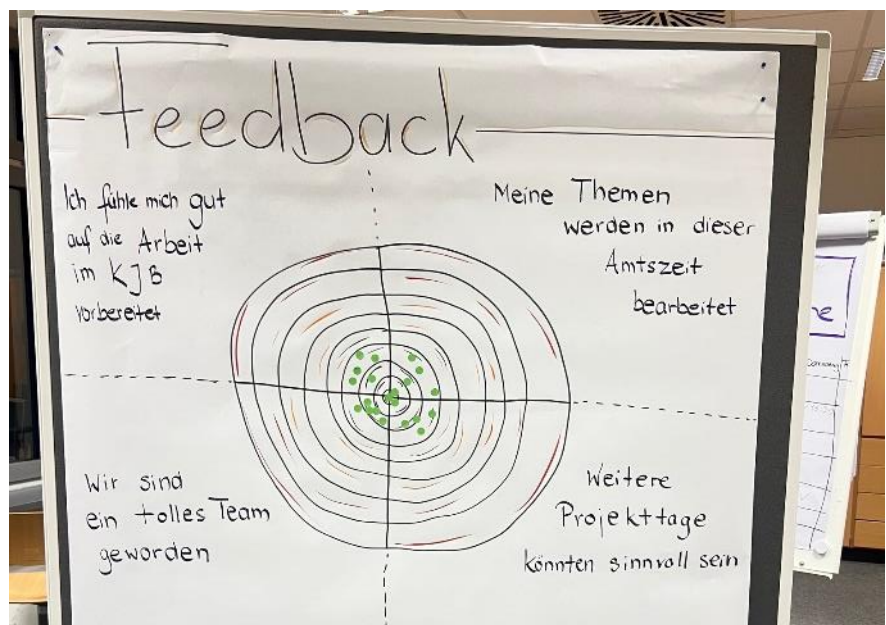 Feedback
Ich fühle mich gut
auf die Arbeit
im KJB
vorbereitet
Meine Themen
werden in dieser
Amtszeit
bearbeitet
Wir sind
ein tolles Team
geworden
Weitere
Projekttage
könnten sinnvoll sein